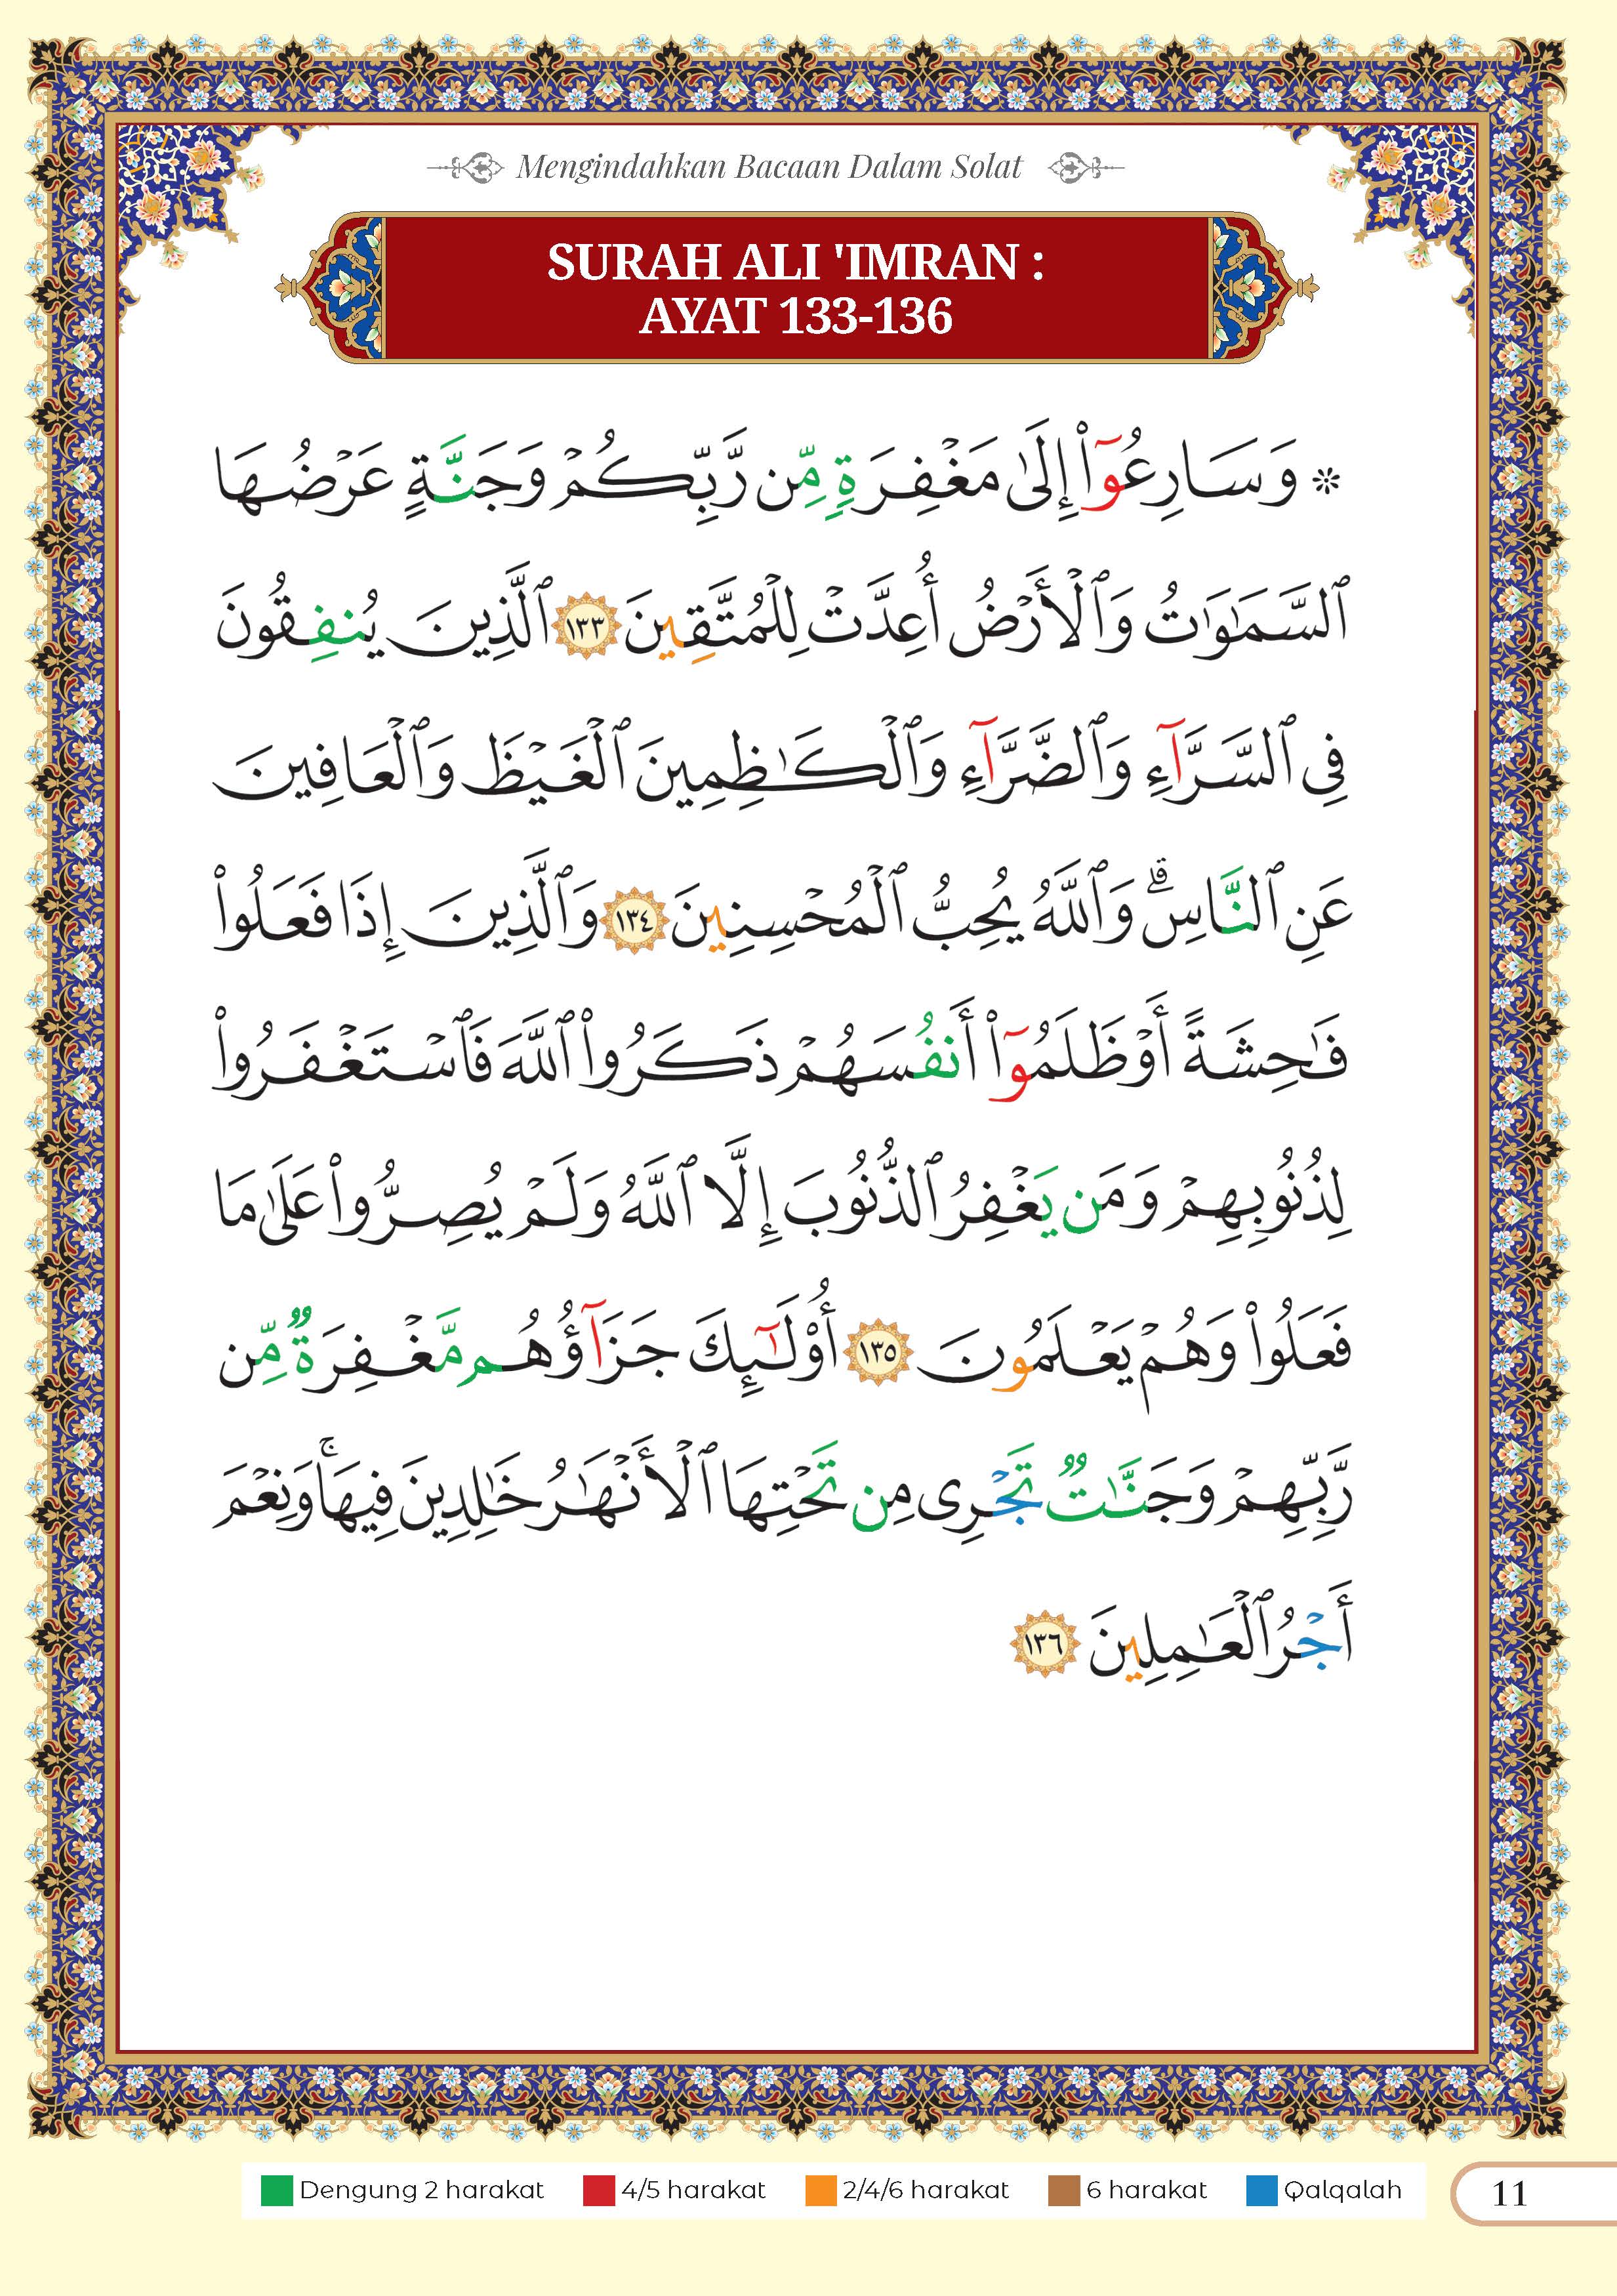 Mengindahkan Bacaan Dalam Solat
SURAH ALI 'IMRAN :
AYAT 133-136
۞ وَسَارِعُوٓا۟ إِلَىٰ مَغْفِرَةٍ مِّن رَّبِّكُمْ وَجَنَّةٍ عَرْضُهَا
ٱلسَّمَـٰوَٰتُ وَٱلْأَرْضُ أُعِدَّتْ لِلْمُتَّقِينَ ١٣٣ ٱلَّذِينَ يُنفِقُونَ
فِى ٱلسَّرَّآءِ وَٱلضَّرَّآءِ وَٱلْكَـٰظِمِينَ ٱلْغَيْظَ وَٱلْعَافِينَ
عَنِ ٱلنَّاسِ ۗ وَٱللَّهُ يُحِبُّ ٱلْمُحْسِنِينَ ١٣٤ وَٱلَّذِينَ إِذَا فَعَلُوا۟
فَـٰحِشَةً أَوْ ظَلَمُوٓا۟ أَنفُسَهُمْ ذَكَرُوا۟ ٱللَّهَ فَٱسْتَغْفَرُوا۟
لِذُنُوبِهِمْ وَمَن يَغْفِرُ ٱلذُّنُوبَ إِلَّا ٱللَّهُ وَلَمْ يُصِرُّوا۟ عَلَىٰ مَا
فَعَلُوا۟ وَهُمْ يَعْلَمُونَ ١٣٥ أُو۟لَـٰٓئِكَ جَزَآؤُهُم مَّغْفِرَةٌ مِّن
رَّبِّهِمْ وَجَنَّـٰتٌ تَجْرِى مِن تَحْتِهَا ٱلْأَنْهَـٰرُ خَـٰلِدِينَ فِيهَا ۚ وَنِعْمَ
أَجْرُ ٱلْعَـٰمِلِينَ ١٣٦
Dengung 2 harakat 4/5 harakat 2/4/6 harakat 6 harakat Qalqalah 11